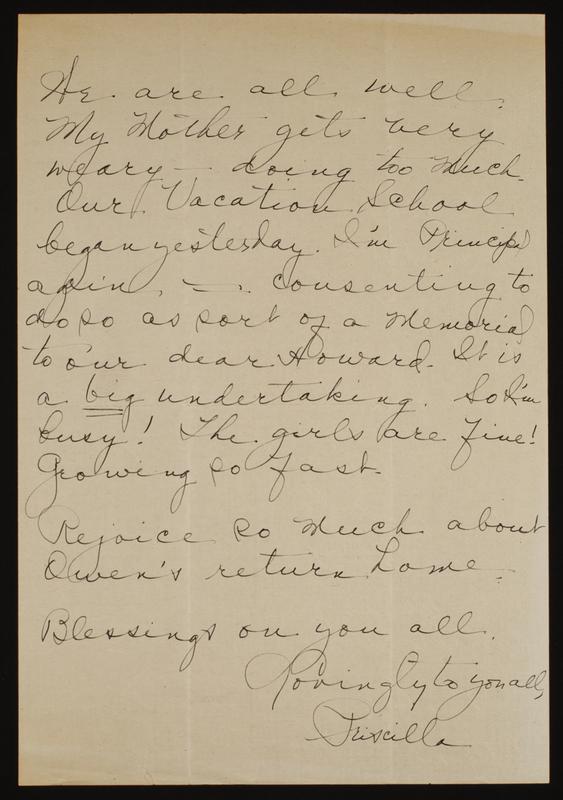 We are all well.
My Mother gets very
weary — doing too much.
Our Vacation School
began yesterday. I'm Principal
again, — consenting to
do so as sort of a Memorial
to our dear Howard. It is
a big undertaking. So I'm
busy! The girls are fine!
Growing so fast.
Rejoice so much about
Owen's return home.
Blessings on you all.
Lovingly to you all,
Priscilla